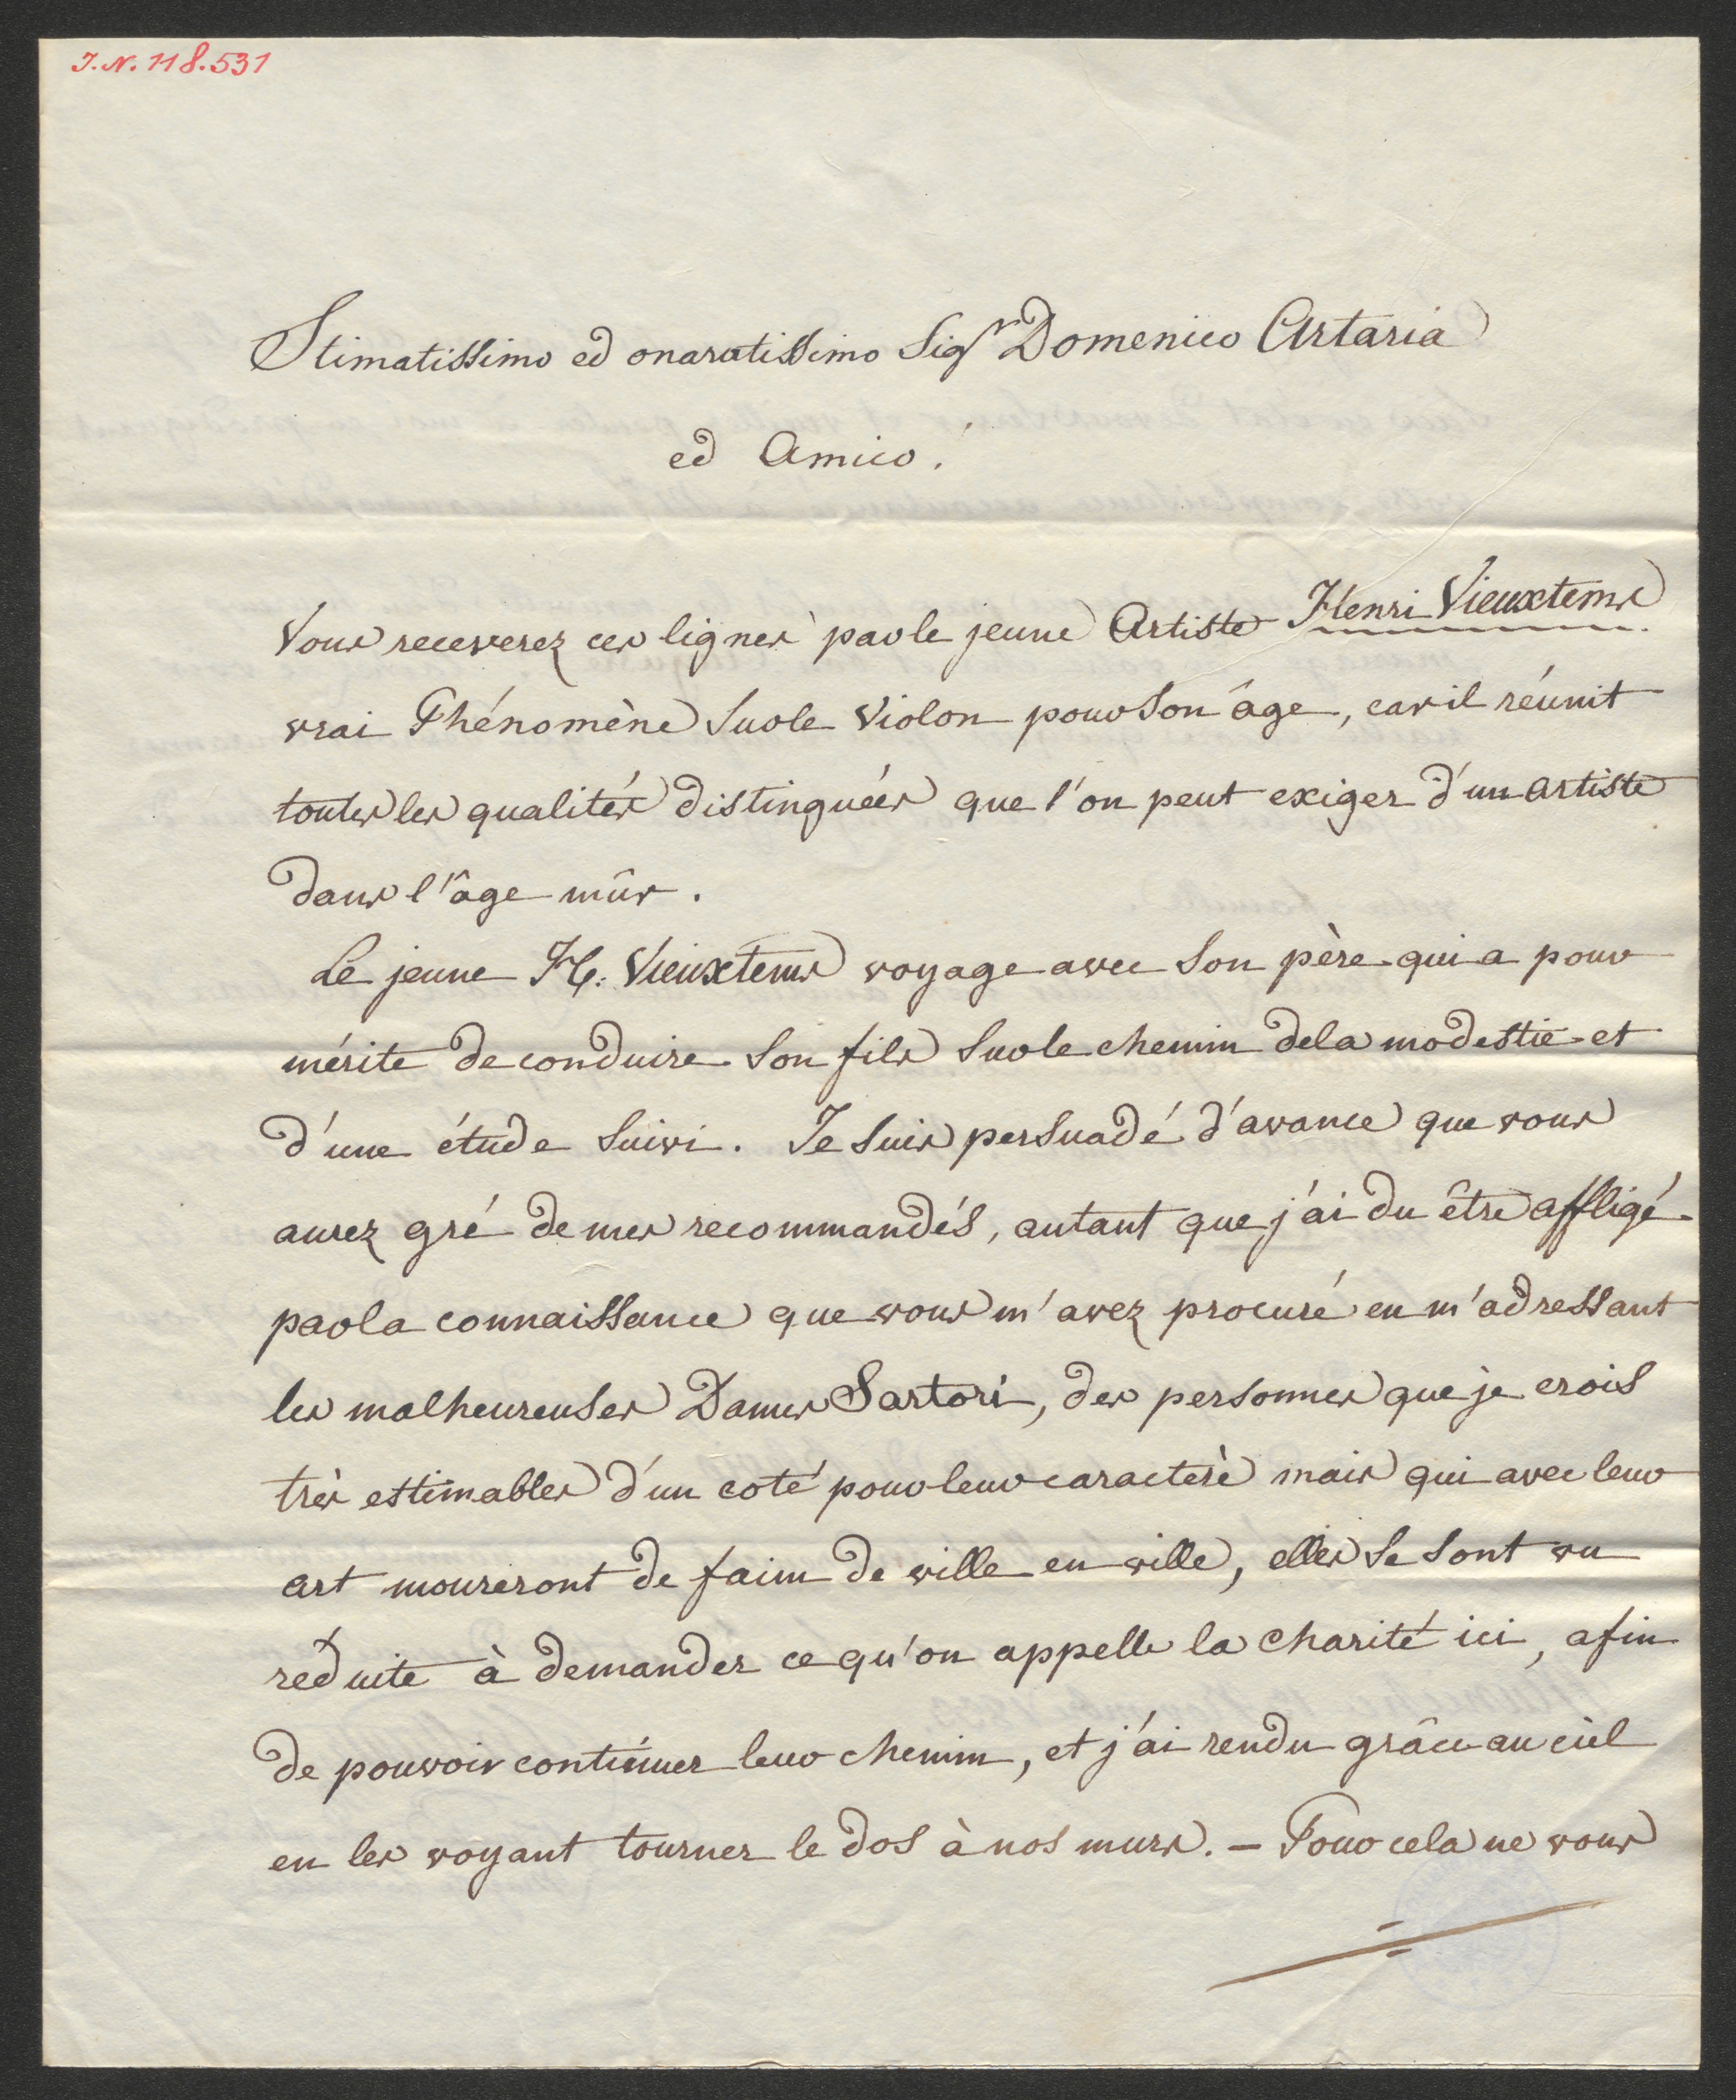 J.N. 118.531
Stimatissimo ed onaratissimo Sigr Domenico Artaria
ed Amico!
Vous receverez ces lignes par le jeune Artiste Henri Vieuxtems
vrai Phénomène sur le Violon pour son âge, car il réunit
toutes les qualités distinguées que l'on peut exiger d'un artiste
dans l'âge mûr.
Le jeune H. Vieuxtems voyage avec son père qui a pour
mérite de conduire son fils sur le chemin de la modestie et
d'une étude suivi. Je suis persuadé d'avance que vous
aurez gré de mes recommandés, autant que j'ai du être affligé
par la connaissance que vous m'avez procuré en m'adressant
les malheureuses Dames Sartori, des personnes que je crois
très estimables d'un coté pour leur caracterè mais qui avec leur
art moureront de faim de ville en ville, elles se sont vu
réduite à demander ce qu'on appelle la charité ici, afin
de pouvoir continuer leur chemin, et j'ai rendu grâce au ciel
en les voyant tourner le dos à nos murs. – Pour cela ne vous